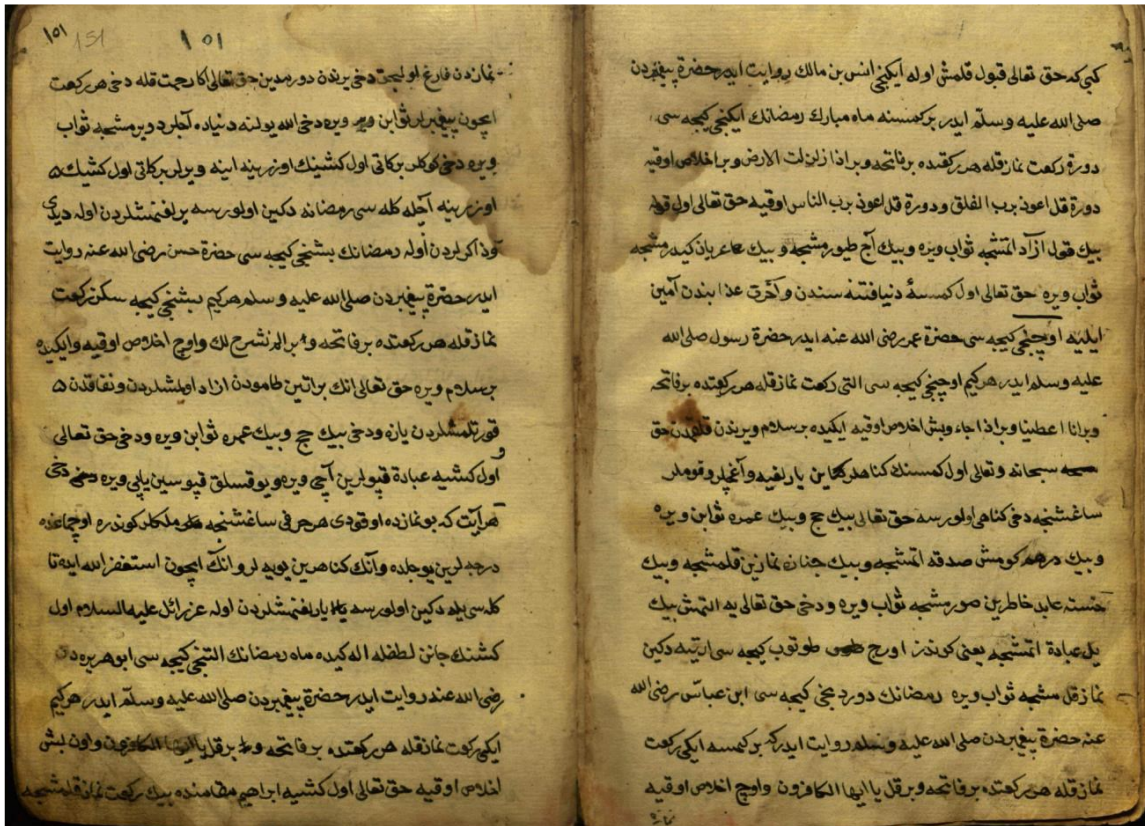 كبى كه حق تعالى قبول قلمش اوله ايكنجى انس بن مالك روايت ايدر حضرة پيغمبردن
صلى الله عليه وسلم ايدر بر كمسنه ماه مبارك رمضانك ايكنجى كيجه سى
دورة ركعت نماز قله هر ركعتده بر فاتحه وبر اذا زلزلت الارض وبر اخلاص اوقيه
دورة قل اعوذ برب الفلق ودورة قل اعوذ برب الناس اوقيه حق تعالى اول قوله
بيك قول ازاد اتمشجه ثواب ويره وبيك آج طيورمشجه وبيك عريان كيدرمشجه
ثواب ويره حق تعالى اول كمسۀ دنيا فتنه سندن وآخرت عذابندن آمين
ايليه اوچنجى كيجه سى حضرة عمر رضى الله عنه ايدر حضرة رسول صلى الله
عليه وسلم ايدر هركيم اوچنجى كيجه سى التى ركعت نماز قله هر ركعتده بر فاتحه
وبر انا اعطينا وبر اذا جاء وبش اخلاص اوقيه ايكيده بر سلام ويرندن حق
سبحانه وتعالى اول كمسنك كناهلر يارلغيه وآغچلر وقوملر
ساغشنجه دخى كناهى اولورسه حق تعالى بيك حج وبيك عمره ثوابن ويره
وبيك درهم كومش صدقه اتمشجه وبيك جنازه نمازين قلمشجه وبيك
خسته عابد خاطرين صورمشجه ثواب ويره ودخى حق تعالى يه التمش بيك
يل عبادة اتمشجه يعنى كوندز اورج طوتوب كيجه سى ارتيه دكين
نماز قلمشجه ثواب ويره رمضانك دوردنجى كيجه سى ابن عباس رضى الله
عنه حضرة پيغمبردن صلى الله عليه وسلم روايت ايدر كه بر كمسه ايكى ركعت
نماز قله هر ركعتده بر فاتحه وبر قل يا ايها الكافرون واوچ اخلاص اوقيه
١٥١ 151 ١٥١
نمازدن فارغ اوليجق دخى يرندن دورمدين حق تعالى اكا رحمت قله دخى هر ركعت
ايچون پيغمبرلر ثوابن ويره دخى الله يولنه دنياده آجلرد ويرمشجه ثواب
ويره دخى كوكلر بركاتى اول كشينك اوزرينه اينه ويرلر بركاتى اول كشينك
اوزرينه آچله كله سى رمضانه دكين اولورسه يرلغنمشلردن اوله ديدى
اوله رمضانك بشنجى كيجه سى حضرة حسن رضى الله عنه روايت
ايدر حضرة پيغمبردن صلى الله عليه وسلم هركيم بشنجى كيجه سكز ركعت
نماز قله هر ركعتده بر فاتحه وبر الم نشرح لك واوچ اخلاص اوقيه وايكيده
بر سلام ويره حق تعالى انك براتين طامودن ازاد اولمشلردن ونفاقدن
قورتلمشلردن يازه ودخى بيك حج وبيك عمره ثوابن ويره ودخى حق تعالى
اول كشيه عبادة قپولرين آچى ويره ويوقسلق قپوسين ياپى ويره دخى
هر آيت كه بو نمازده اوقودى هر حرفى ساغشنجه ملكلر كوندره اوچماغده
درجه لرين يوجلده وآنك كناهرين يويه لر وانك ايچون استغفر الله ايده تا
كله سى يله دكين اولورسه يارلغنمشلردن اوله عزرائل عليه السلام اول
كشنك جانن لطفله اله كيده ماه رمضانك التنجى كيجه سى ابو هريره دن
رضى الله عنه روايت ايدر حضرة پيغمبردن صلى الله عليه وسلم ايدر هركيم
ايكى ركعت نماز قله هر ركعتده بر فاتحه وبر قل يا ايها الكافرون واون بش
اخلاص اوقيه حق تعالى اول كشيه ابراهيم مقامنده بيك ركعت نماز قلمشجه